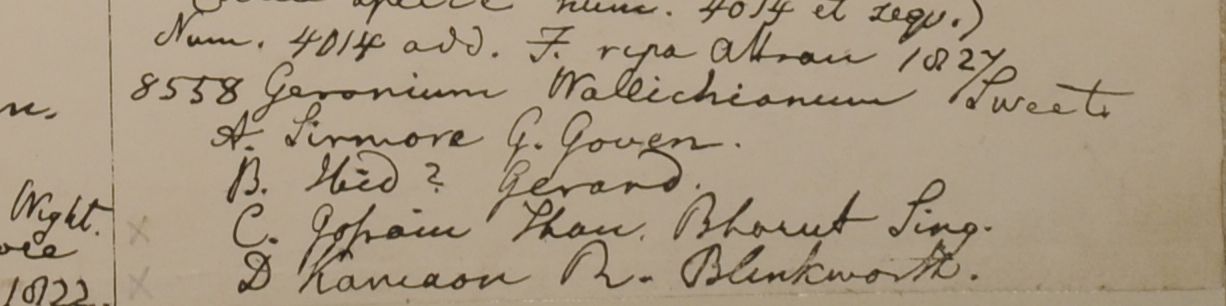 specie num. 4014 et sequ.)
Num. 4014 add. F. ripa Attran 1827
8558 Geranium Wallichianum Sweet
A. Sirmore G. Goven.
B. Ibid? Gerard.
C. Gosain Than. Bharut Sing.
D Kamaon R. Blinkworth.
n.
Wight.
1822.